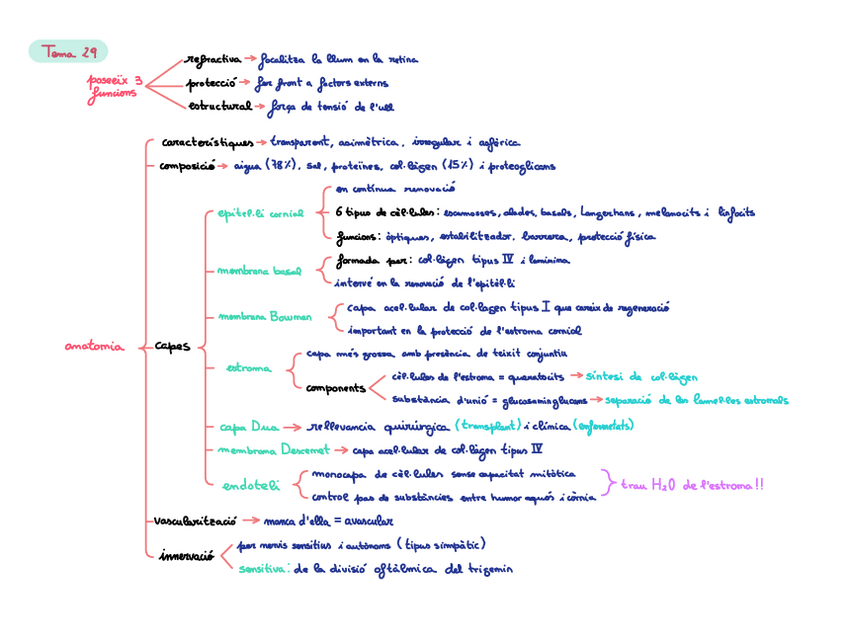 Tema 29
poseeix 3 funcions
refractiva → focalitza la llum en la retina
protecció → fer front a factors externs
estructural → força de tensió de l'ull
anatomia
característiques → transparent, asimètrica, irregular i asfèrica
composició → aigua (78%), sal, proteïnes, col·làgen (15%) i proteoglicans
capes
epitel·li cornial
en contínua renovació
6 tipus de cèl·lules: escamosses, alades, basals, Langerhans, melanocits i linfocits
funcions: òptiques, estabilitzador, barrera, protecció física
membrana basal
formada per: col·làgen tipus IV i laminina
intervé en la renovació de l'epitel·li
membrana Bowman
capa acel·lular de col·lagen tipus I que careix de regeneració
important en la protecció de l'estroma cornial
estroma
capa més grossa amb presència de teixit conjuntiu
components
cèl·lules de l'estroma = queratocits → síntesi de col·làgen
substància d'unió = glucosaminglucans → separació de les lamel·les estromals
capa Dua → rellevancia quirúrgica (transplant) i clínica (enfermetats)
membrana Descemet → capa acel·lular de col·làgen tipus IV
endoteli
monocapa de cèl·lules sense capacitat mitòtica
control pas de substàncies entre humor aquós i còrnia
trau H2O de l'estroma!!
vascularització → manca d'ella = avascular
innervació
per nervis sensitius i autònoms (tipus simpàtic)
sensitiva: de la divisió oftàlmica del trigemin